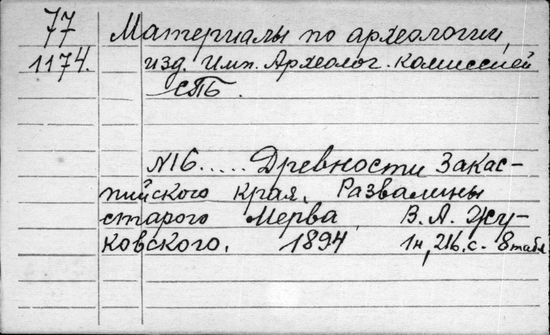 77 Материалы по археологии,
1174. изд. Имп. Археолог. Комиссией
СПБ.
№16..... Древности Закас-
пийского края. Развалины
старого Мерва В. А. Жу-
ковского. 1894 1н, 216.с. 8 табл